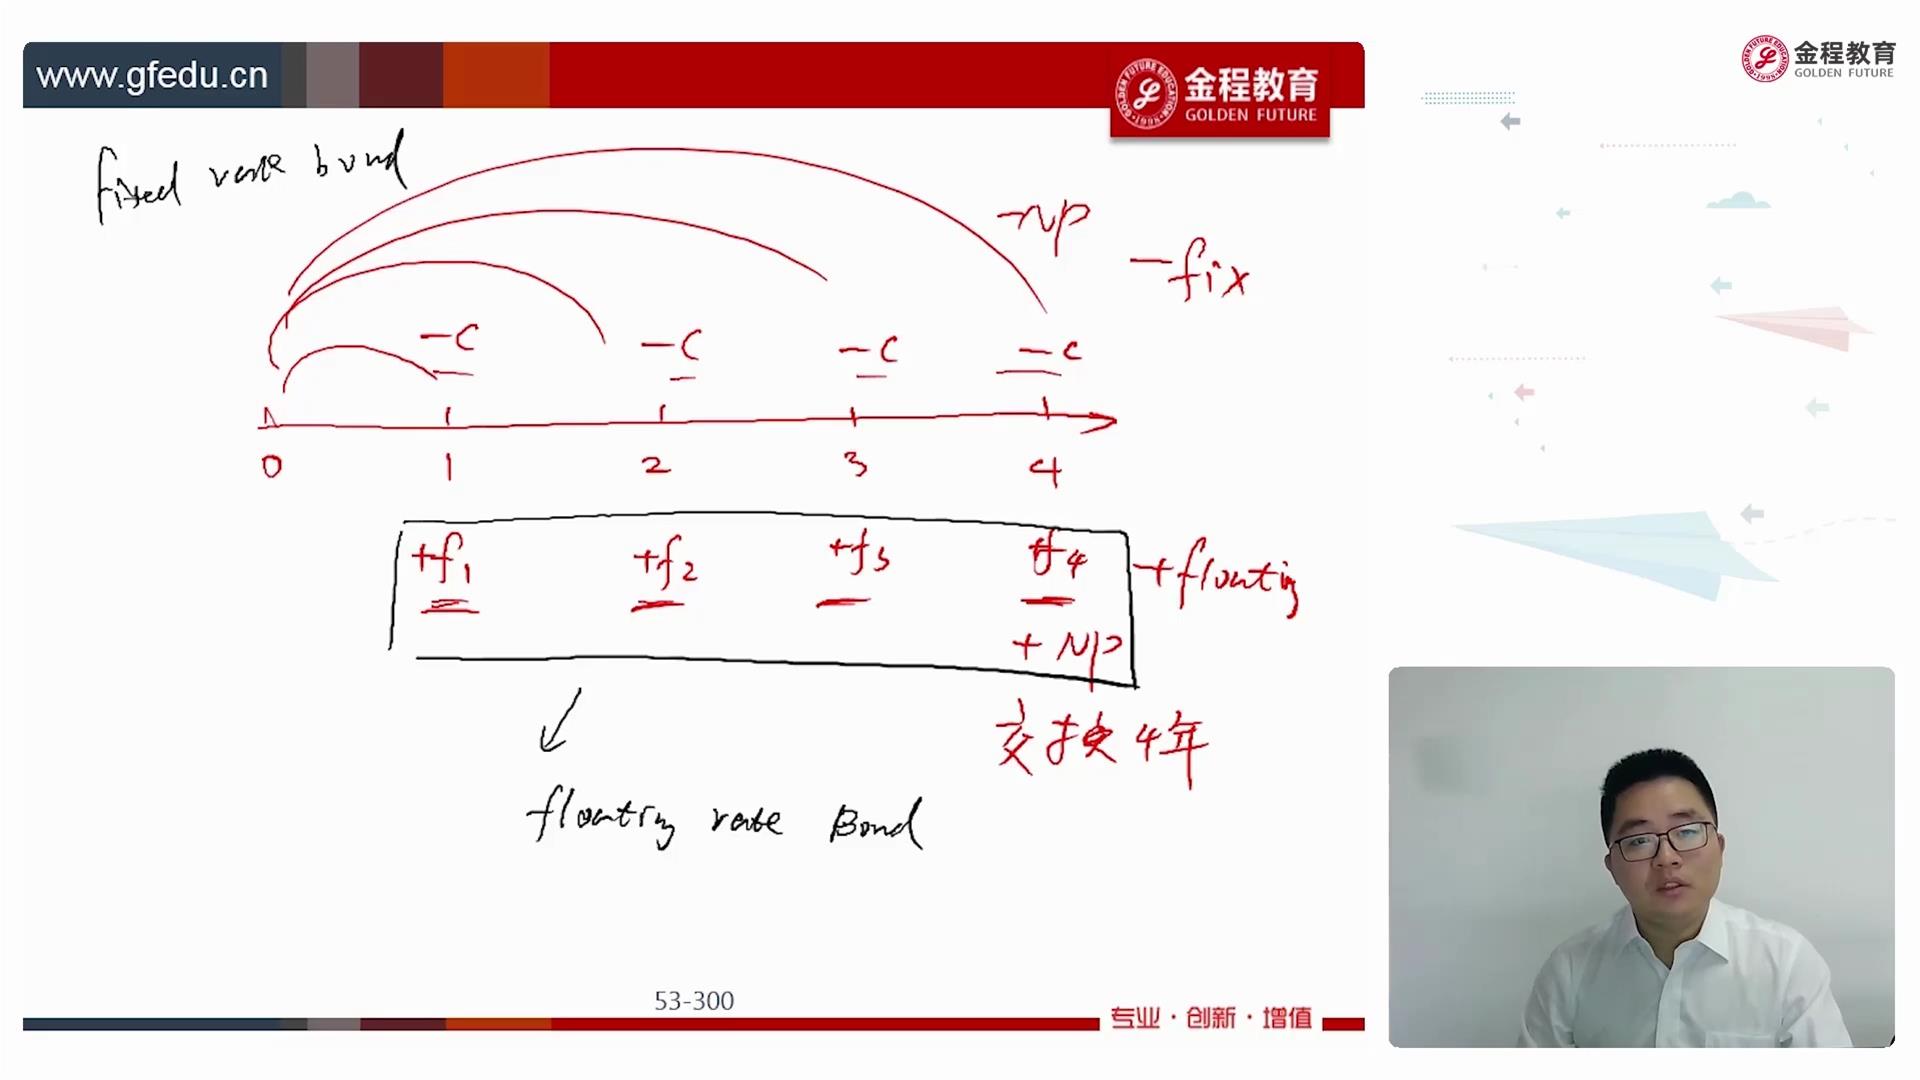 www.gfedu.cn
金程教育
GOLDEN FUTURE
金程教育
GOLDEN FUTURE
fixed rate bond
-NP
-fix
-C -C -C -C
0 1 2 3 4
+f1 +f2 +f3 +f4
+floating
+ NP
交换4年
floating rate Bond
53-300
专业·创新·增值